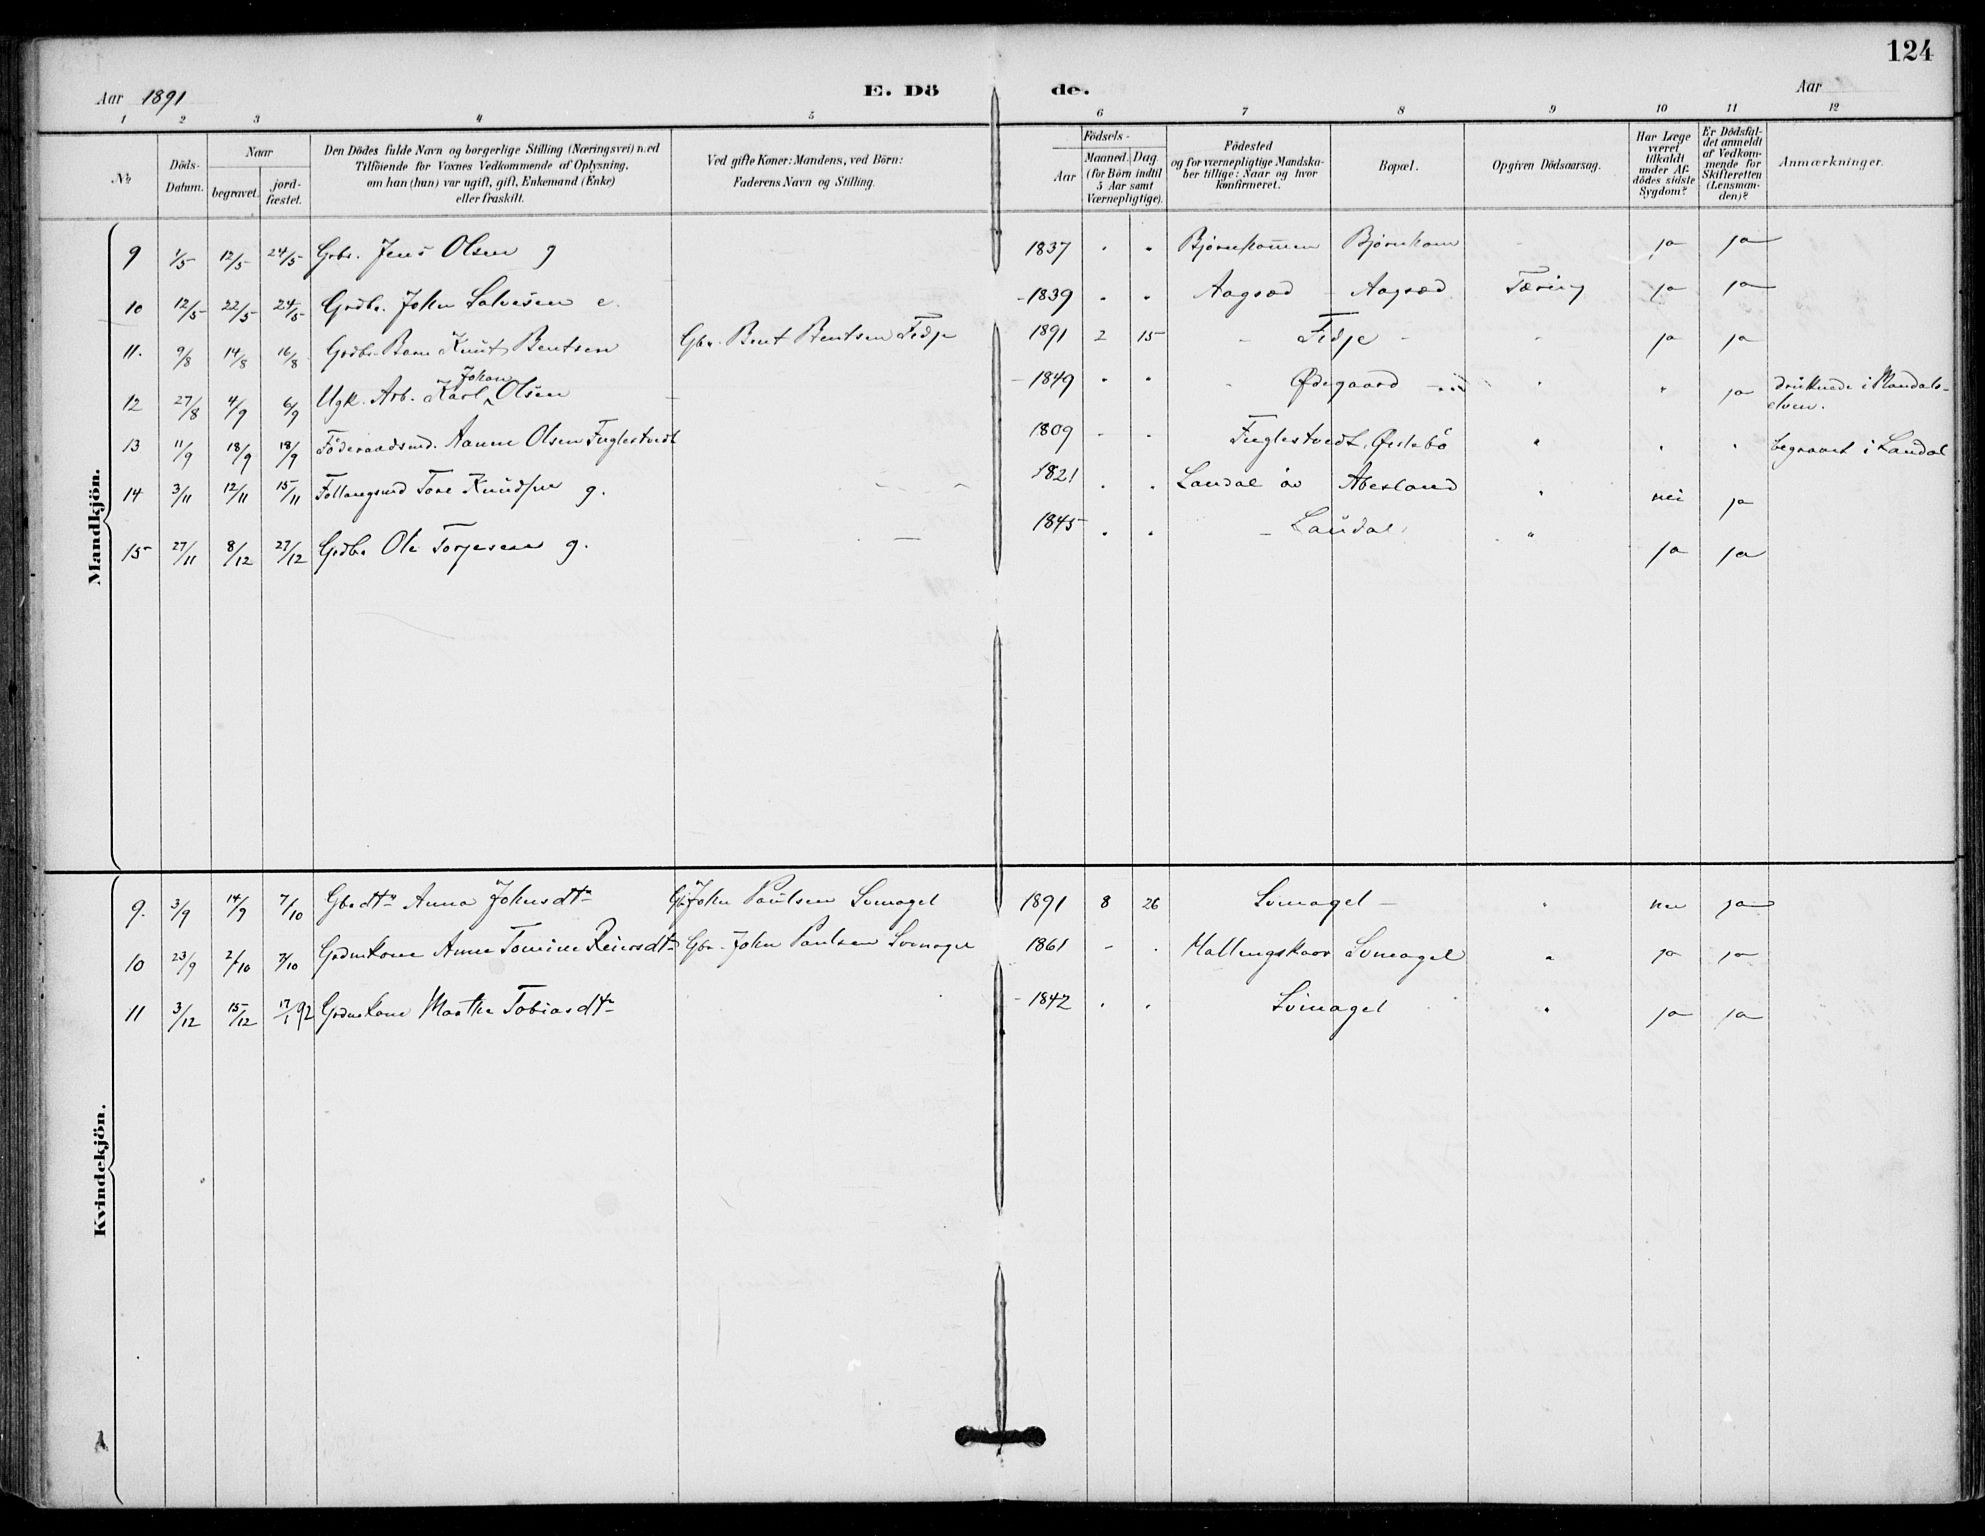 124
Aar 1891 E. Dö de. Aar
1 2 3 4 5 6 7 8 9 10 11 12
№ Döds-Datum. Naar begravet. jord-fæstet. Den Dödes fulde Navn og borgerlige Stilling (Næringsvei) med Tilföiende for Voxnes Vedkommende af Oplysning, om han (hun) var ugift, gift, Enkemand (Enke) eller fraskilt. Ved gifte Koner: Mandens, ved Börn: Faderens Navn og Stilling. Födsels- Aar Maaned. Dag. (for Börn indtil 5 Aar samt Værnepligtige). Födested og for værnepligtige Mandska-ber tillige: Naar og hvor konfirmeret. Bopæl. Opgiven Dödsaarsag. Har Læge været tilkaldt under Af-dödes sidste Sygdom? Er Dödsfal-det anmeldt af Vedkom-mende for Skifteretten (Lensman-den)? Anmærkninger.
Mandkjön.
9 1/5 12/5 24/5 Grbr. Jens Olsen g 1837 " " Bjørnkommen Bjørnkom ja ja
10 12/5 22/5 24/5 Grdbr. John Salvesen e. 1839 " " Aagsæd Aagsæd Tæring ja ja
11. 9/8 14/8 16/8 Grdbr. Barn Knut Bentsen Gbr. Bent Bentsen Fidje 1891 2 15 - Fidje - ja ja
Johan
12 27/8 4/9 6/9 Ugk. Arb. Karl Olsen - 1849 " " Ødegaard " " ja druknede i Mandals-
elven.
13 11/9 18/9 18/9 Föderaadsmd. Aanen Olsen Fuglestvedt 1809 - " Fuglestvedt, Øislebö " " " begravet i Laudal
14 3/11 12/11 15/11 Tore Knudsen g. 1821 " " Laudal öv Abesland " nei ja
15 27/11 8/12 27/12 Grdbr Ole Torjesen g. 1845 " " - Laudal " ja ja
Kvindekjön.
9. 3/9 14/9 7/10 Gbr dtr Anna Johnsdtr Gbr John Paulsen Svinagel 1891 8 26 Svinagel - " nei ja
10 23/9 2/10 7/10 Grdmkone Anne Tomine Reiersdtr Gbr. John Paulsen Svinagel 1861 - " Hallingskaar Svinagel " ja ja
11 3/12 15/12 17/1 92 Grdmkone Marthe Tobiasdtr 1842 " " Svinagel " ja ja